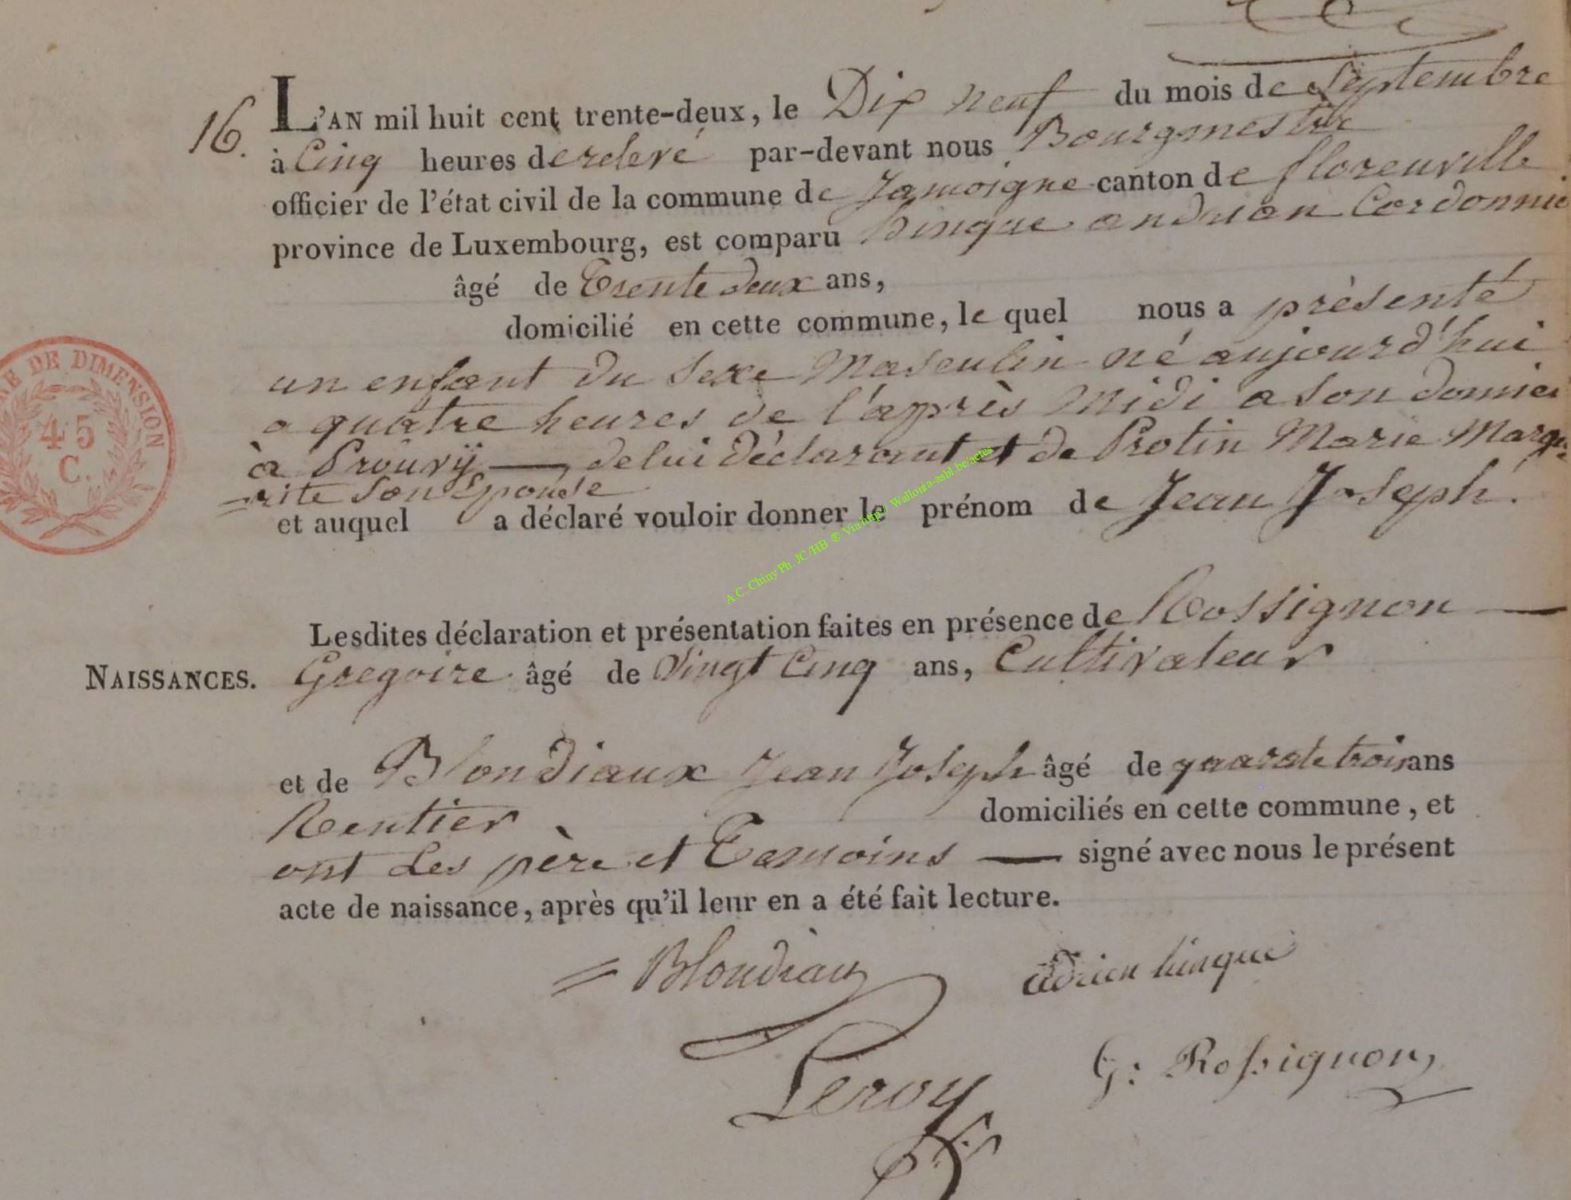 16. L'AN mil huit cent trente-deux, le Dix neuf du mois de Septembre
à Cinq heures de relevé par-devant nous Bourgmestre
officier de l'état civil de la commune de Jamoigne canton de florenville
province de Luxembourg, est comparu hinque andrian Cordonnie
âgé de Trente deux ans,
domicilié en cette commune, le quel nous a présenté
un enfant du sexe Masculin né aujourd'hui
a quatre heures de l'après Midi a son domici
à Prouvÿ — de lui déclarant et de Protin Marie Margue
= rite son Epouse
et auquel a déclaré vouloir donner le prénom de Jean Joseph.
Lesdites déclaration et présentation faites en présence de Rossignon —
NAISSANCES. Gregoire âgé de Vingt Cinq ans, Cultivateur
et de Blondiaux Jean Joseph âgé de trois ans
Rentier domiciliés en cette commune, et
ont Les père et Temoins — signé avec nous le présent
acte de naissance, après qu'il leur en a été fait lecture.
= Blondiau adrien hinque
Leroy G: Rossignon
DE DIMENSION
45
C.
A.C. Chiny Ph. JC/HB ®